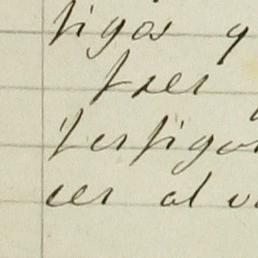 tigos q
tres
testigos
cer al v